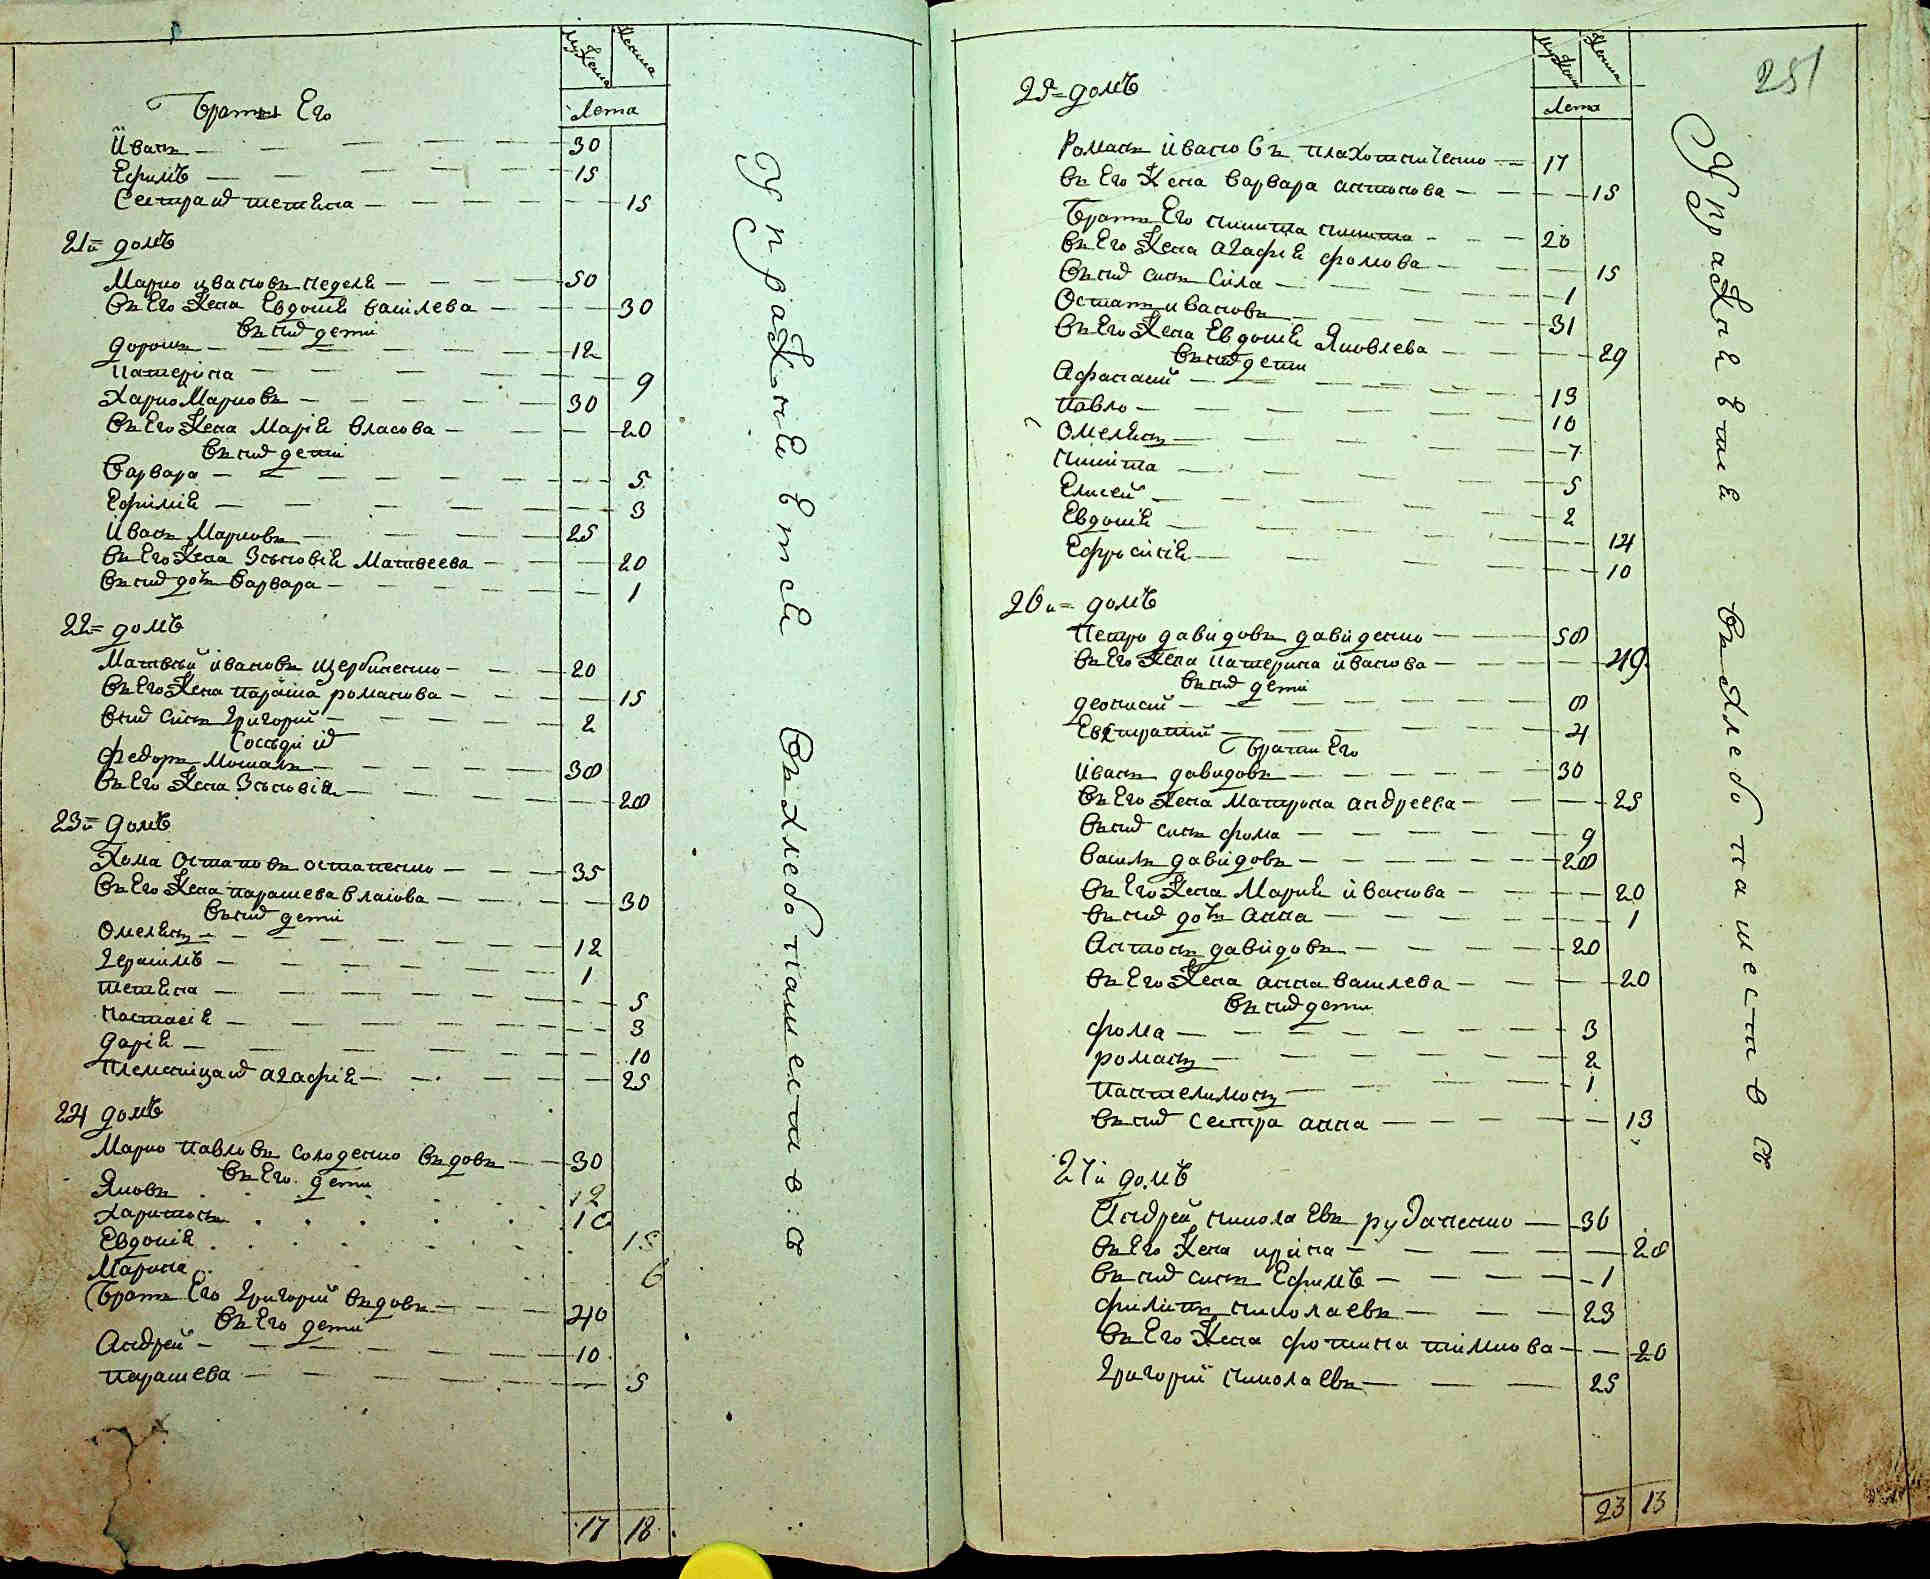 мужеска женска
Лета
Браты Его
Иванъ 30
Ефимъ 15
Сестра ид тетяна 15
21й домъ
Марко ивановъ неделя 50
въ Его жена Евдокия василева 30
въ нид дети
дорошъ 12
катерина 9
Харко Марковъ 30
въ Его жена Мария власова 20
въ нид дети
Варвара 5
Ефимия 3
Иванъ Марковъ 25
въ Его жена Зѣновия Матвеева 20
въ нид дочъ варвара 1
22 домъ
Матвѣй ивановъ щербиненко 20
въ Его жена параска романова 15
внид синъ григорий 2
Соседи ид
Федоръ Мошанъ 38
въ Его жена Зѣновия 28
23й домъ
Хома Остаповъ остапенко 35
въ Его жена парашева власова 30
въ нид дети
Омелянъ 12
герасимъ 1
тетяна 5
настасия 3
дария 10
племеница ид агафия 25
24 домъ
Марко павловъ солоденко въдовъ 30
въ Его дети
Яковъ 12
харитонъ 10
Евдокия 15
Марина 6
Братъ Его григорий въдовъ 40
въ Его дети
Андрей 10
парашева 5
17 18
Упражняется
въ хлебопашества
251
мужеска женска
Лета
25 домъ
Романъ ивановъ плахотниченко 17
въ Его жена варвара антонова 15
Братъ Его никита никита 20
въ Его жена агафия фомова 15
въ нид синъ Сила 1
Остапъ ивановъ 31
въ Его жена Евдокия Яковлева 29
въ нид дети
Афанасий 13
павло 10
Омелянъ 7
никита 5
Елисей 2
Евдокия 14
Ефросиния 10
26й домъ
Петро давидовъ давиденко 58
въ Его жена катерина ивановa 49
въ нид дети
деонисий 8
Евстратий 4
Братья Его
Иванъ давидовъ 30
въ Его жена Матрона андреева 25
въ нид синъ фома 9
василь давидовъ 28
въ Его жена Мария иванова 20
въ нид дочъ анна 1
Антонъ давидовъ 20
въ Его жена анна василева 20
въ нид дети
фома 3
романъ 2
пантелимонъ 1
въ нид сестра анна 13
27й домъ
Андрей николаевъ рудаченко 36
въ Его жена ирина 28
въ нид синъ Ефимъ 1
филипъ николаевъ 23
въ Его жена фотина тимкова 20
григорий николаевъ 25
23 13
Упражняется
въ хлебопашества